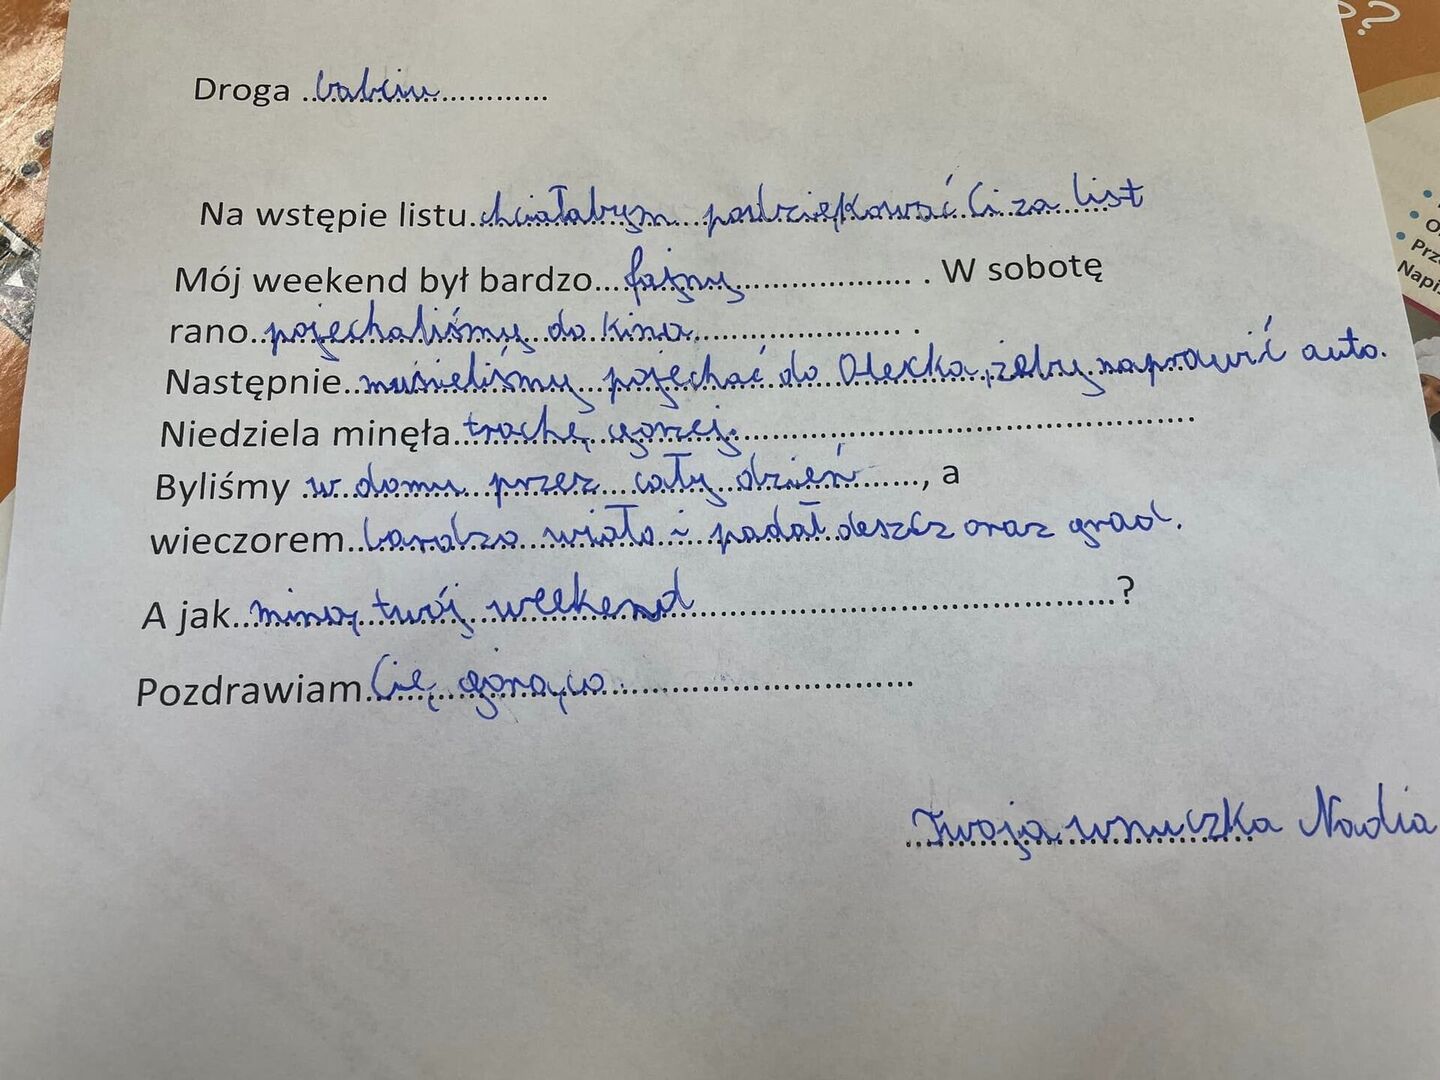 ??
Droga babciu
Na wstępie listu chciałabym podziękować Ci za list
Mój weekend był bardzo fajny . W sobotę
rano pojechaliśmy do kina .
Następnie musieliśmy pojechać do Olecka, żeby naprawić auto.
Niedziela minęła trochę gorzej.
Byliśmy w domu przez cały dzień , a
wieczorem bardzo wiało i padał deszcz oraz grad.
A jak minął twój weekend ?
Pozdrawiam Cię gorąco
Twoja wnuczka Nadia